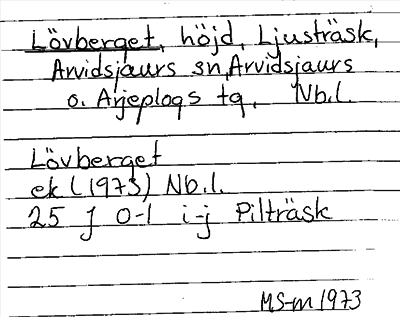 Lövberget, höjd, Ljusträsk,
Arvidsjaurs sn, Arvidsjaurs
o. Arjeplogs tg, Nb.l.
Lövberget
ek (1973) Nb.l.
25 J 0-1 i-j Pilträsk
MS-m 1973